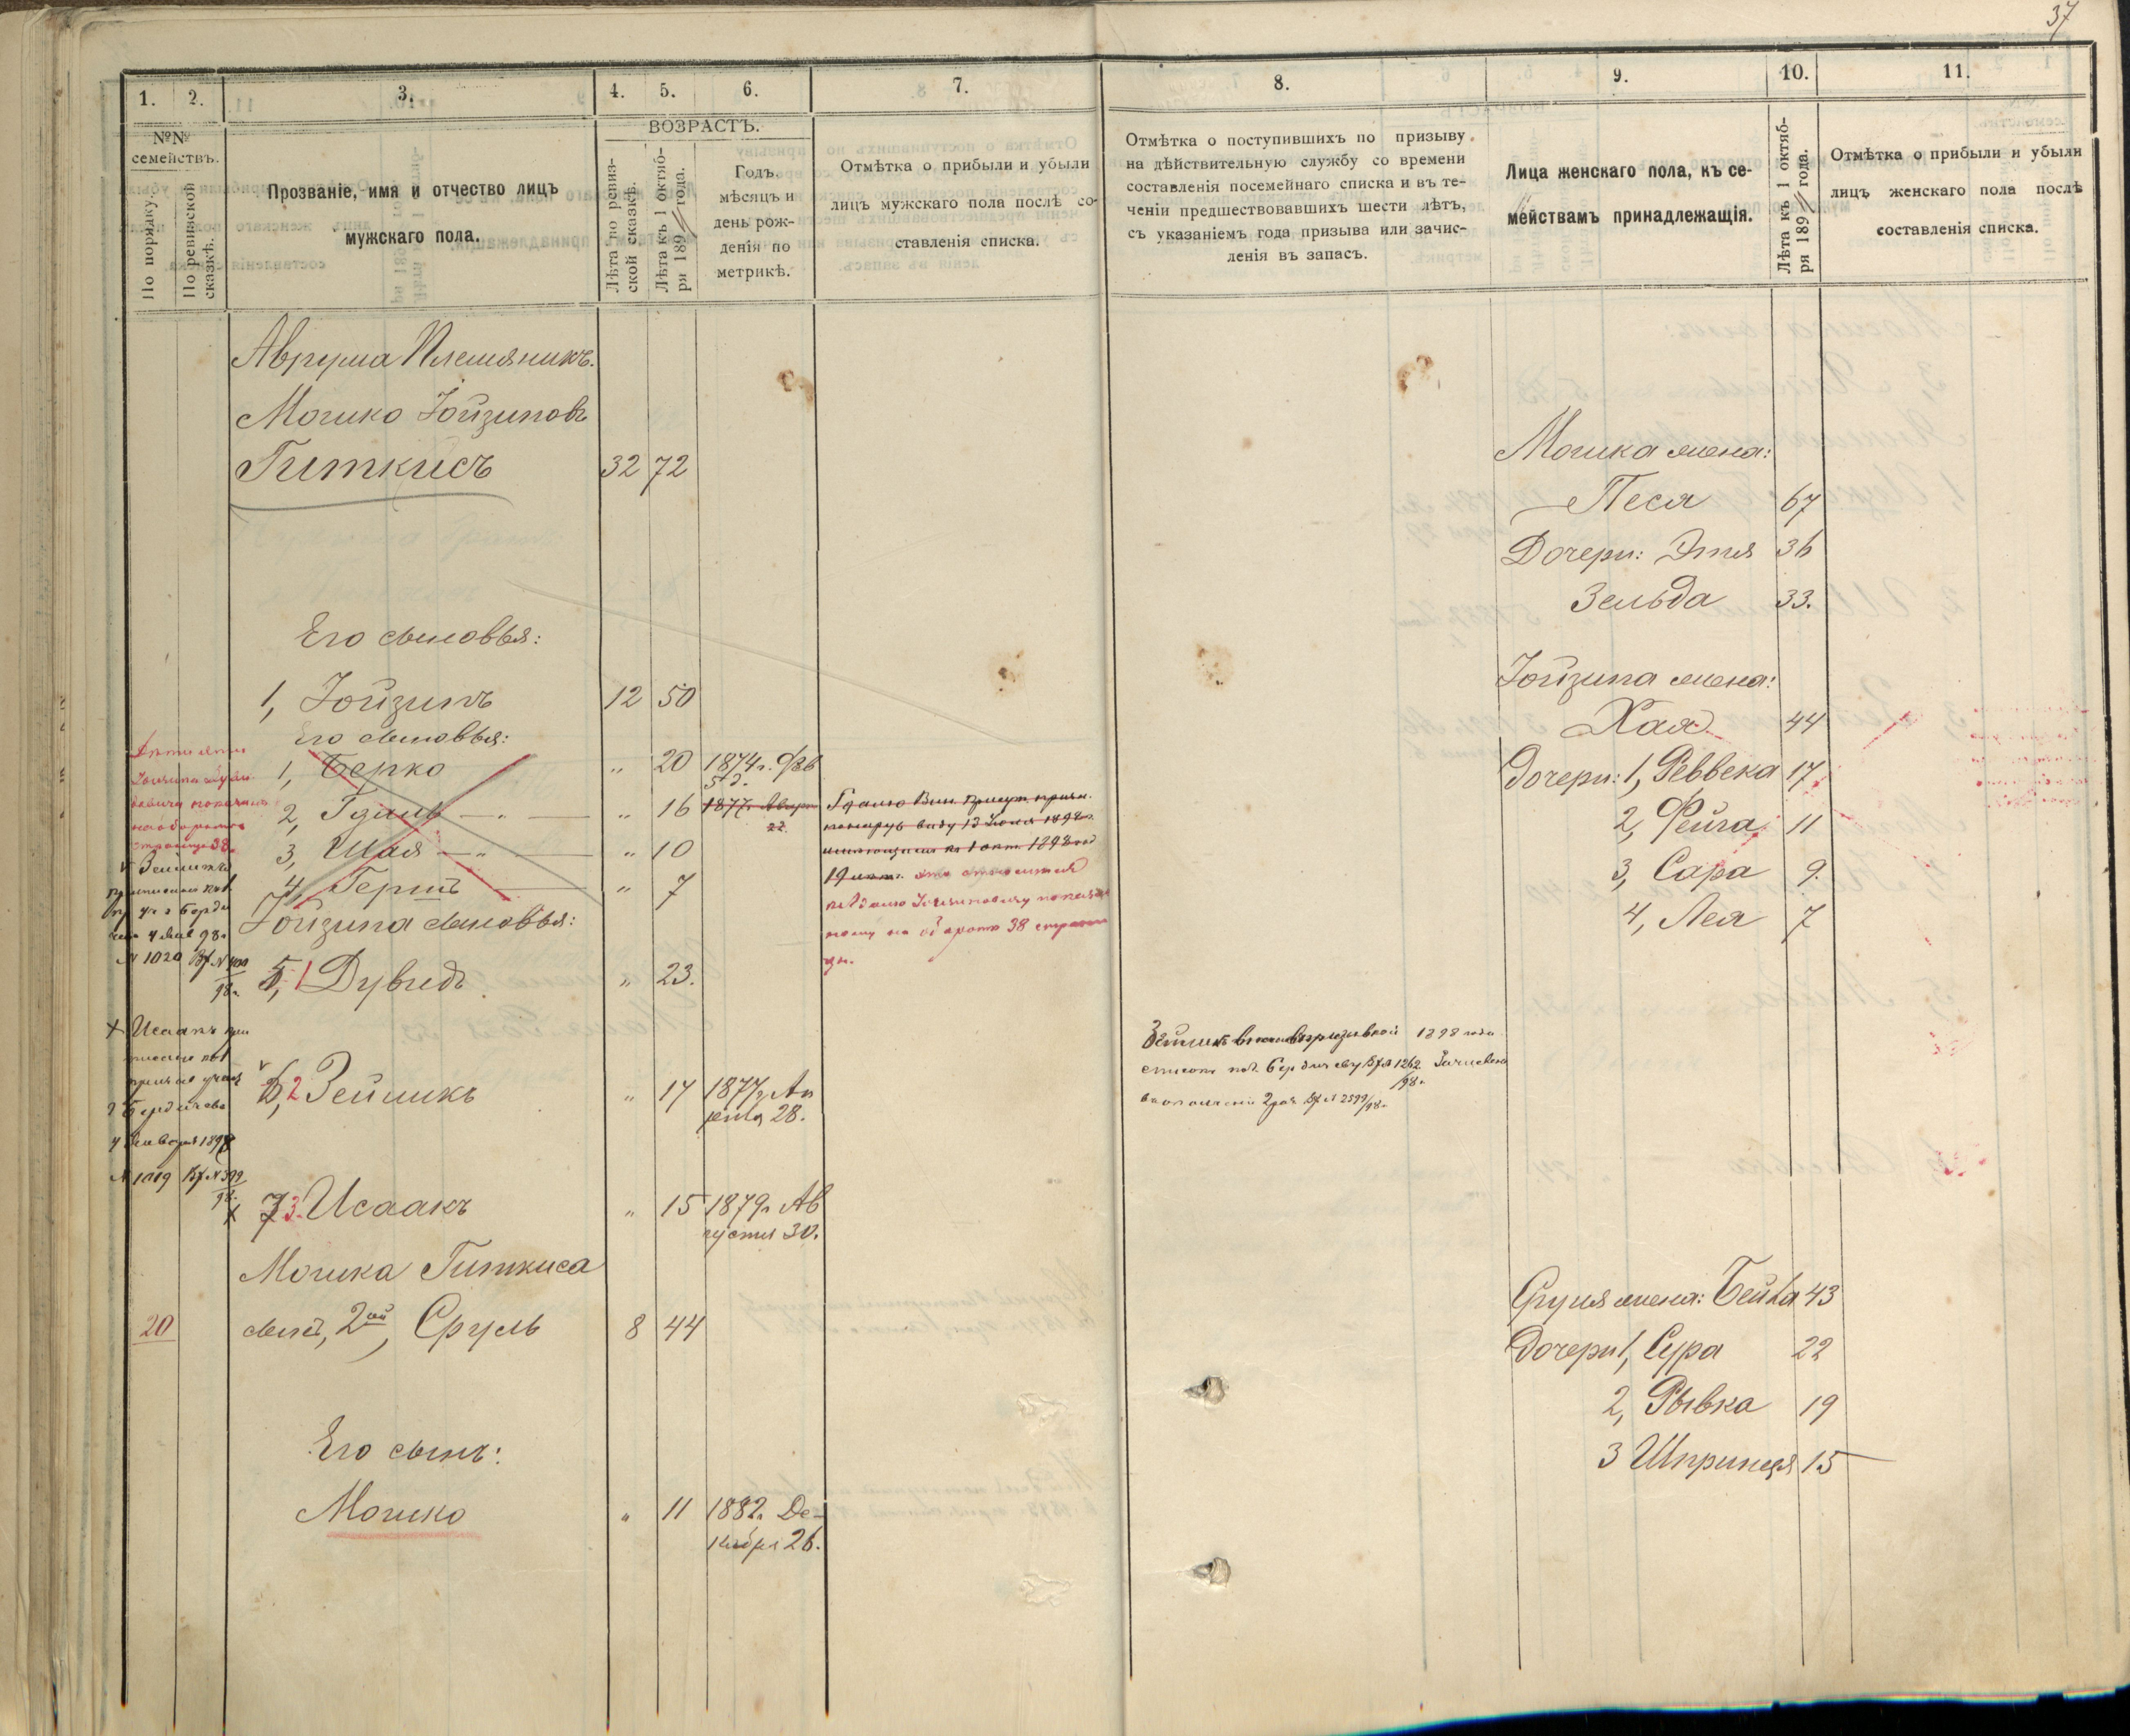 37
1. 2. 3. 4. 5. 6. 7. 8. 9. 10. 11.
№№ семействъ.
По порядку.
По ревизской сказкѣ.
Прозваніе, имя и отчество лицъ
мужскаго пола.
ВОЗРАСТЪ.
Лѣта по ревизской сказкѣ.
Лѣта къ 1 октября 189 года.
Годъ,
мѣсяцъ и
день рож-
денія по
метрикѣ.
Отмѣтка о прибыли и убыли
лицъ мужскаго пола послѣ со-
ставленія списка.
Отмѣтка о поступившихъ по призыву
на дѣйствительную службу со времени
составленія посемейнаго списка и въ те-
ченіи предшествовавшихъ шести лѣтъ,
съ указаніемъ года призыва или зачис-
ленія въ запасъ.
Лица женскаго пола, къ се-
мействамъ принадлежащія.
Лѣта къ 1 октября 189 года.
Отмѣтка о прибыли и убыли
лицъ женскаго пола послѣ
составленія списка.
Аврума Племяникъ.
Мошко Іойзиповъ
Гиткисъ 32 72
Мошка жена:
Песя 67
Дочери: Этя 36
Зельда 33.
Его сыновья:
1, Іойзипъ 12 50
Іойзипа жена:
Хая 44
Его сыновья:
1, Берко „ 20 1874 г. Фев
5 д.
2, Гдаль — „ — „ 16 1877
22.
3, Шая — „ — „ 10
4, Гершъ — „ 7
Дочери: 1, Реввека 17
2, Фейга 11
3, Сара 9
4, Лея 7
19 лѣт. это относится
къ Гдалю Іойзиповичу показан
ному на оборотѣ 38 страни
цы.
Іойзипа сыновья:
5, 1 Дувидъ „ 23.
6, 2 Зейликъ „ 17 1877 г. Ап
реля 28.
1898 года
7 3. Исаакъ „ 15 1879 г. Ав
густа 30.
№ 1020 Вх № 400
98 г.
Х Исаакъ при
4 Января 1898
№ 1019 Вх № 399
98 г.
Мошка Гиткиса
20 сынъ, 2ой, Сруль 8 44
Сруля жена: Бейла 43
Дочери 1, Сура 22
2, Рывка 19
3 Шпринця 15
Его сынъ:
Мошко „ 11 1882 г. Де-
кабря 26.